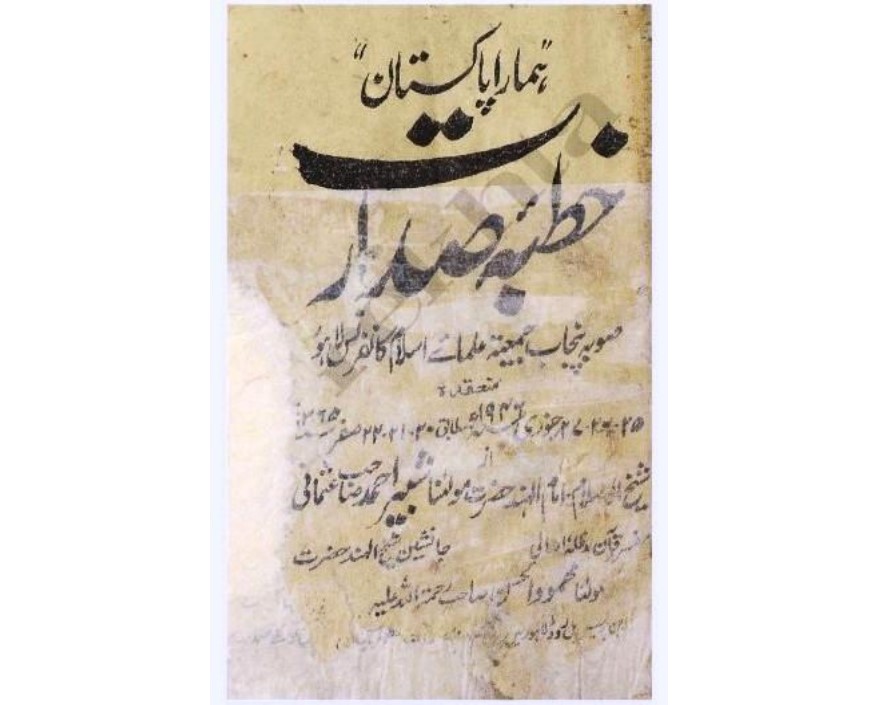 "ہمارا پاکستان"
خطبۂ صدارت
صوبہ پنجاب جمعیۃ علمائے اسلام کانفرنس لاہور
منعقدہ
۲۵-۲۶-۲۷ جنوری ۱۹۴۶ء مطابق ۲۰-۲۱-۲۲ صفر ۱۳۶۵
از
شیخ الاسلام امام الہند حضرت مولٰنا شبیر احمد صاحب عثمانی
مفسر قرآن مدظلہ العالی جانشین شیخ الہند حضرت
مولٰنا محمود الحسن صاحب رحمۃ اللہ علیہ
روڈ لاہور میں
Rekhta